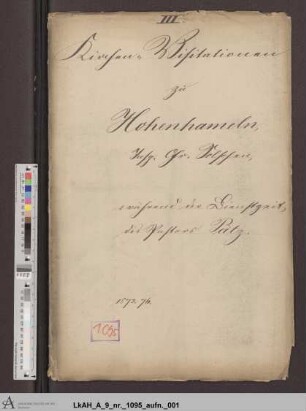 III.
Kirchen-Visitationen
zu
Hohenhameln,
Insp. Gr. Solschen,
während der Dienstzeit
des Pastors Pätz.
1872.76.
1095
LkAH_A_9_nr._1095_aufn._001